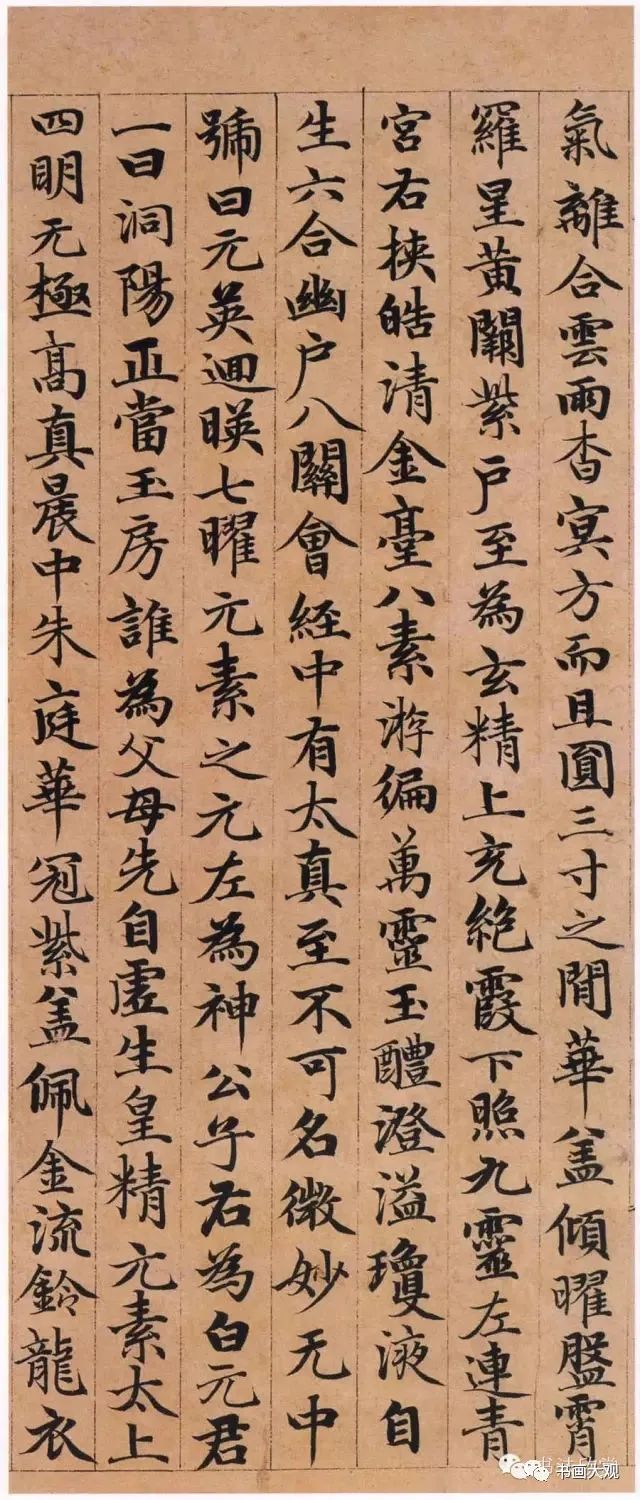 氣離合雲雨杳冥方而且圓三寸之間華盖傾曜盤霄
羅星黃闕紫戶至為玄精上充絶霞下照九靈左連青
宮右挾皓清金臺八素游徧萬靈玉醴澄溢瓊液自
生六合幽户八關會經中有太真至不可名微妙无中
號曰元英迴暎七曜元素之元左為神公子右為白元君
一曰洞陽正當玉房誰為父母先自虛生皇精元素太上
四明无極高真晨中朱庭華冠紫盖佩金流鈴龍衣
书画大观